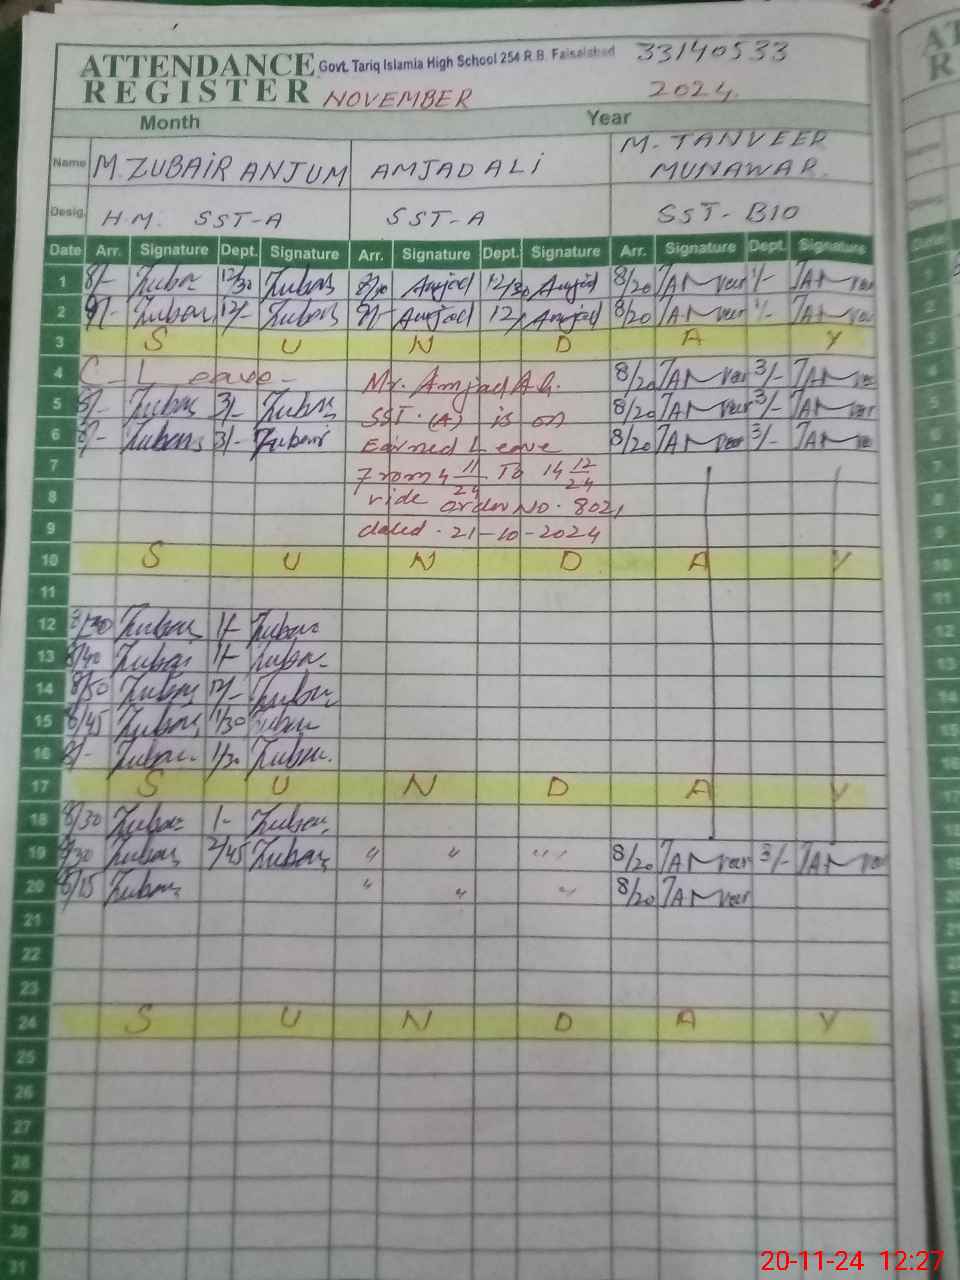 ATTENDANCE Govt. Tariq Islamia High School 254 R.B. Faisalabad 33140533
REGISTER NOVEMBER 2024
Month Year
Name M. ZUBAIR ANJUM AMJAD ALi M. TANVEER MUNAWAR.
Desig. H.M. SST-A SST-A SST-BIO
Date Arr. Signature Dept. Signature Arr. Signature Dept. Signature Arr. Signature Dept. Signature
1 8/- 12/30 Amjad 12/30 Amjad 8/20 TANveer 1/- TANveer
2 9/- 12/- 9/- Amjad 12/ Amjad 8/20 TANveer 1/- TANveer
3 S U N D A Y
4 C-Leave- Mr. Amjad Ali. 8/20 TANveer 3/- TANveer
5 8/- 3/- SST.(A) is on 8/20 TANveer 3/- TANveer
6 8/- 3/- Earned Leave 8/20 TANveer 3/- TANveer
7 From 4 11/24 To 14 12/24
8 vide order No. 802,
9 dated. 21-10-2024
10 S U N D A Y
11
12 8/30 1/-
13 8/40 1/-
14 8/50 12/-
15 8/45 1/30
16 8/- 1/30
17 S U N D A Y
18 8/30 1-
19 8/30 2/45 " " " " 8/20 TANveer 3/- TANveer
20 8/15 " " " 8/20 TANveer
21
22
23
24 S U N D A Y
25
26
27
28
29
30
31
20-11-24 12:27